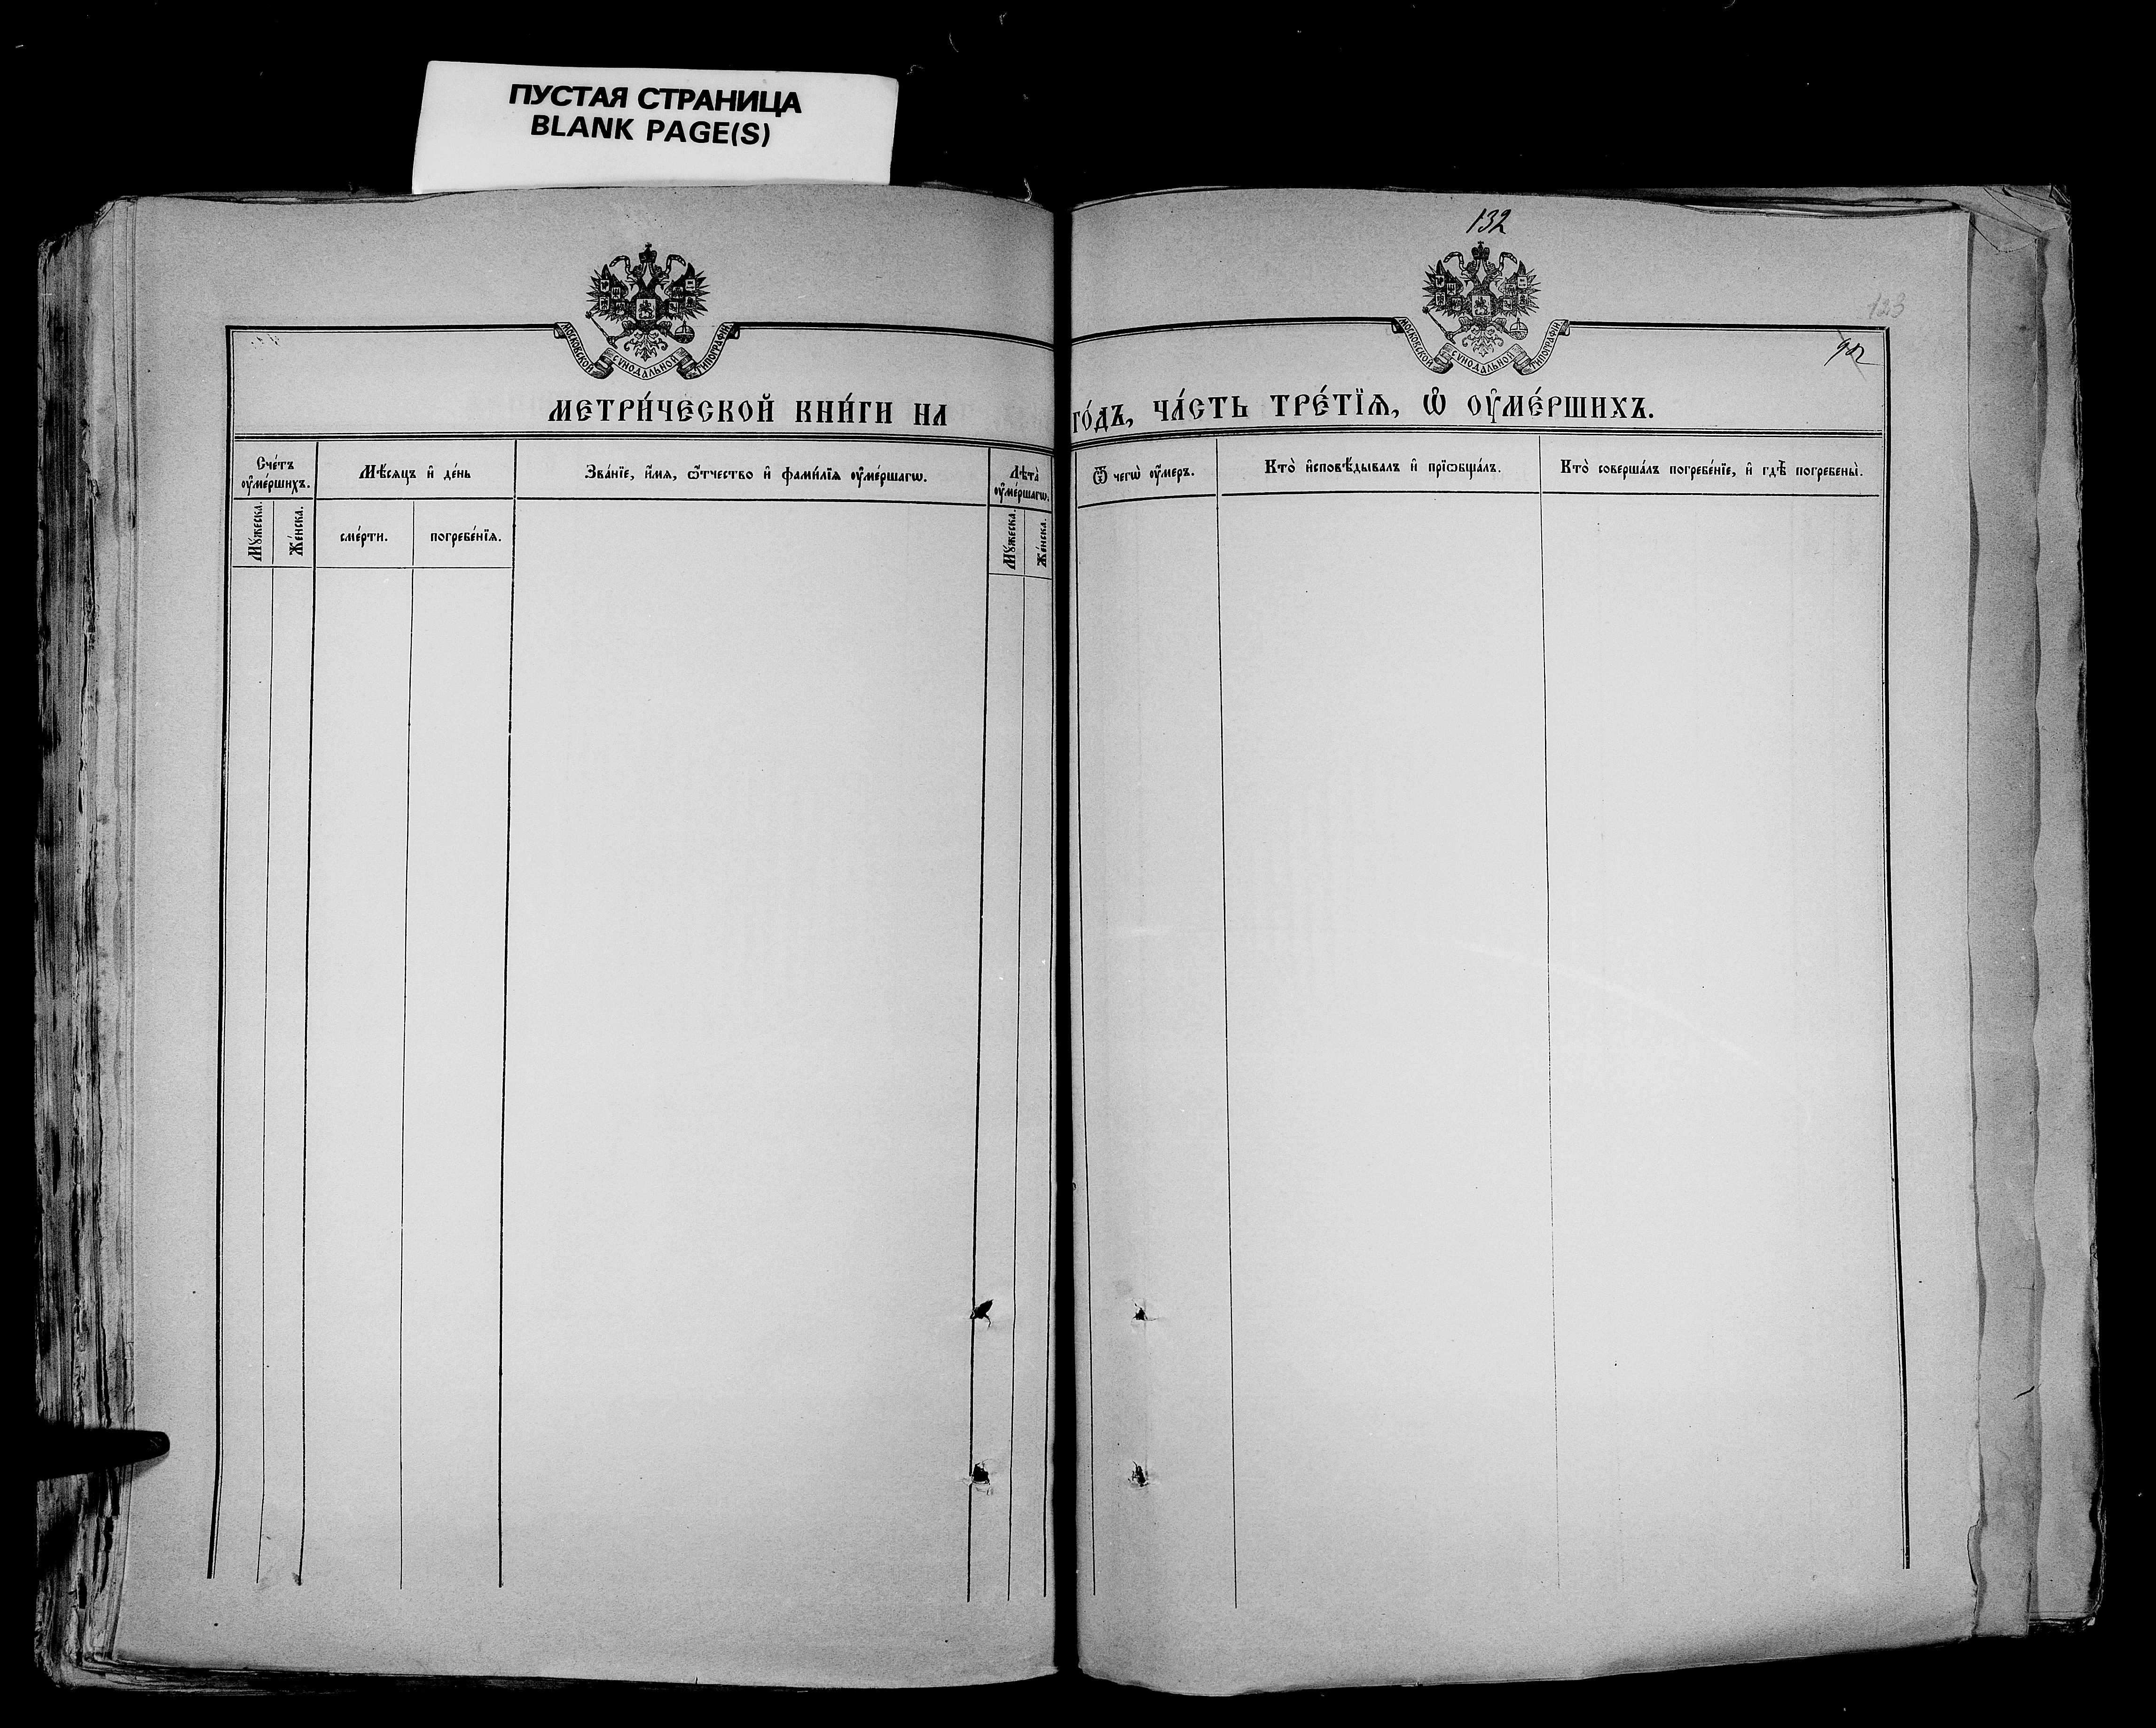 ПУСТАЯ СТРАНИЦА
BLANK PAGE(S)
132
123
МОСКОВСКОЙ СѴНОДАЛЬНОЙ ТИПОГРАФІИ
МОСКОВСКОЙ СѴНОДАЛЬНОЙ ТИПОГРАФІИ
МЕТРИ́ЧЕСКОЙ КНИ́ГИ НА
ГО́ДЪ, ЧА́СТЬ ТРЕ́ТЇѦ, Ѡ҆ ОУ҆МЕ́РШИХЪ.
Сче́тъ оу҆ме́ршихъ.
Мѣ́сяцъ и҆ де́нь
Зва́нїе, и҆́мя, ѻ҆́тчество и҆ фами́лїя оу҆ме́ршагѡ.
Лѣта̀ оу҆ме́ршагѡ.
Ѿ чегѡ̀ оу҆́меръ.
Кто̀ и҆сповѣ́дывалъ и҆ прїѡбща́лъ.
Кто̀ соверша́лъ погребе́нїе, и҆ гдѣ̀ погребены̀.
Мꙋ́жеска.
Же́нска.
сме́рти.
погребе́нїя.
Мꙋ́жеска.
Же́нска.